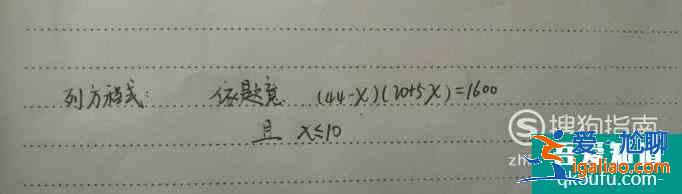 列方程式: 依题意 (44-x)(20+5x)=1600
且 x≤10
搜狗指南
zh
爱尬聊
igaliao.com
qkoufu.com